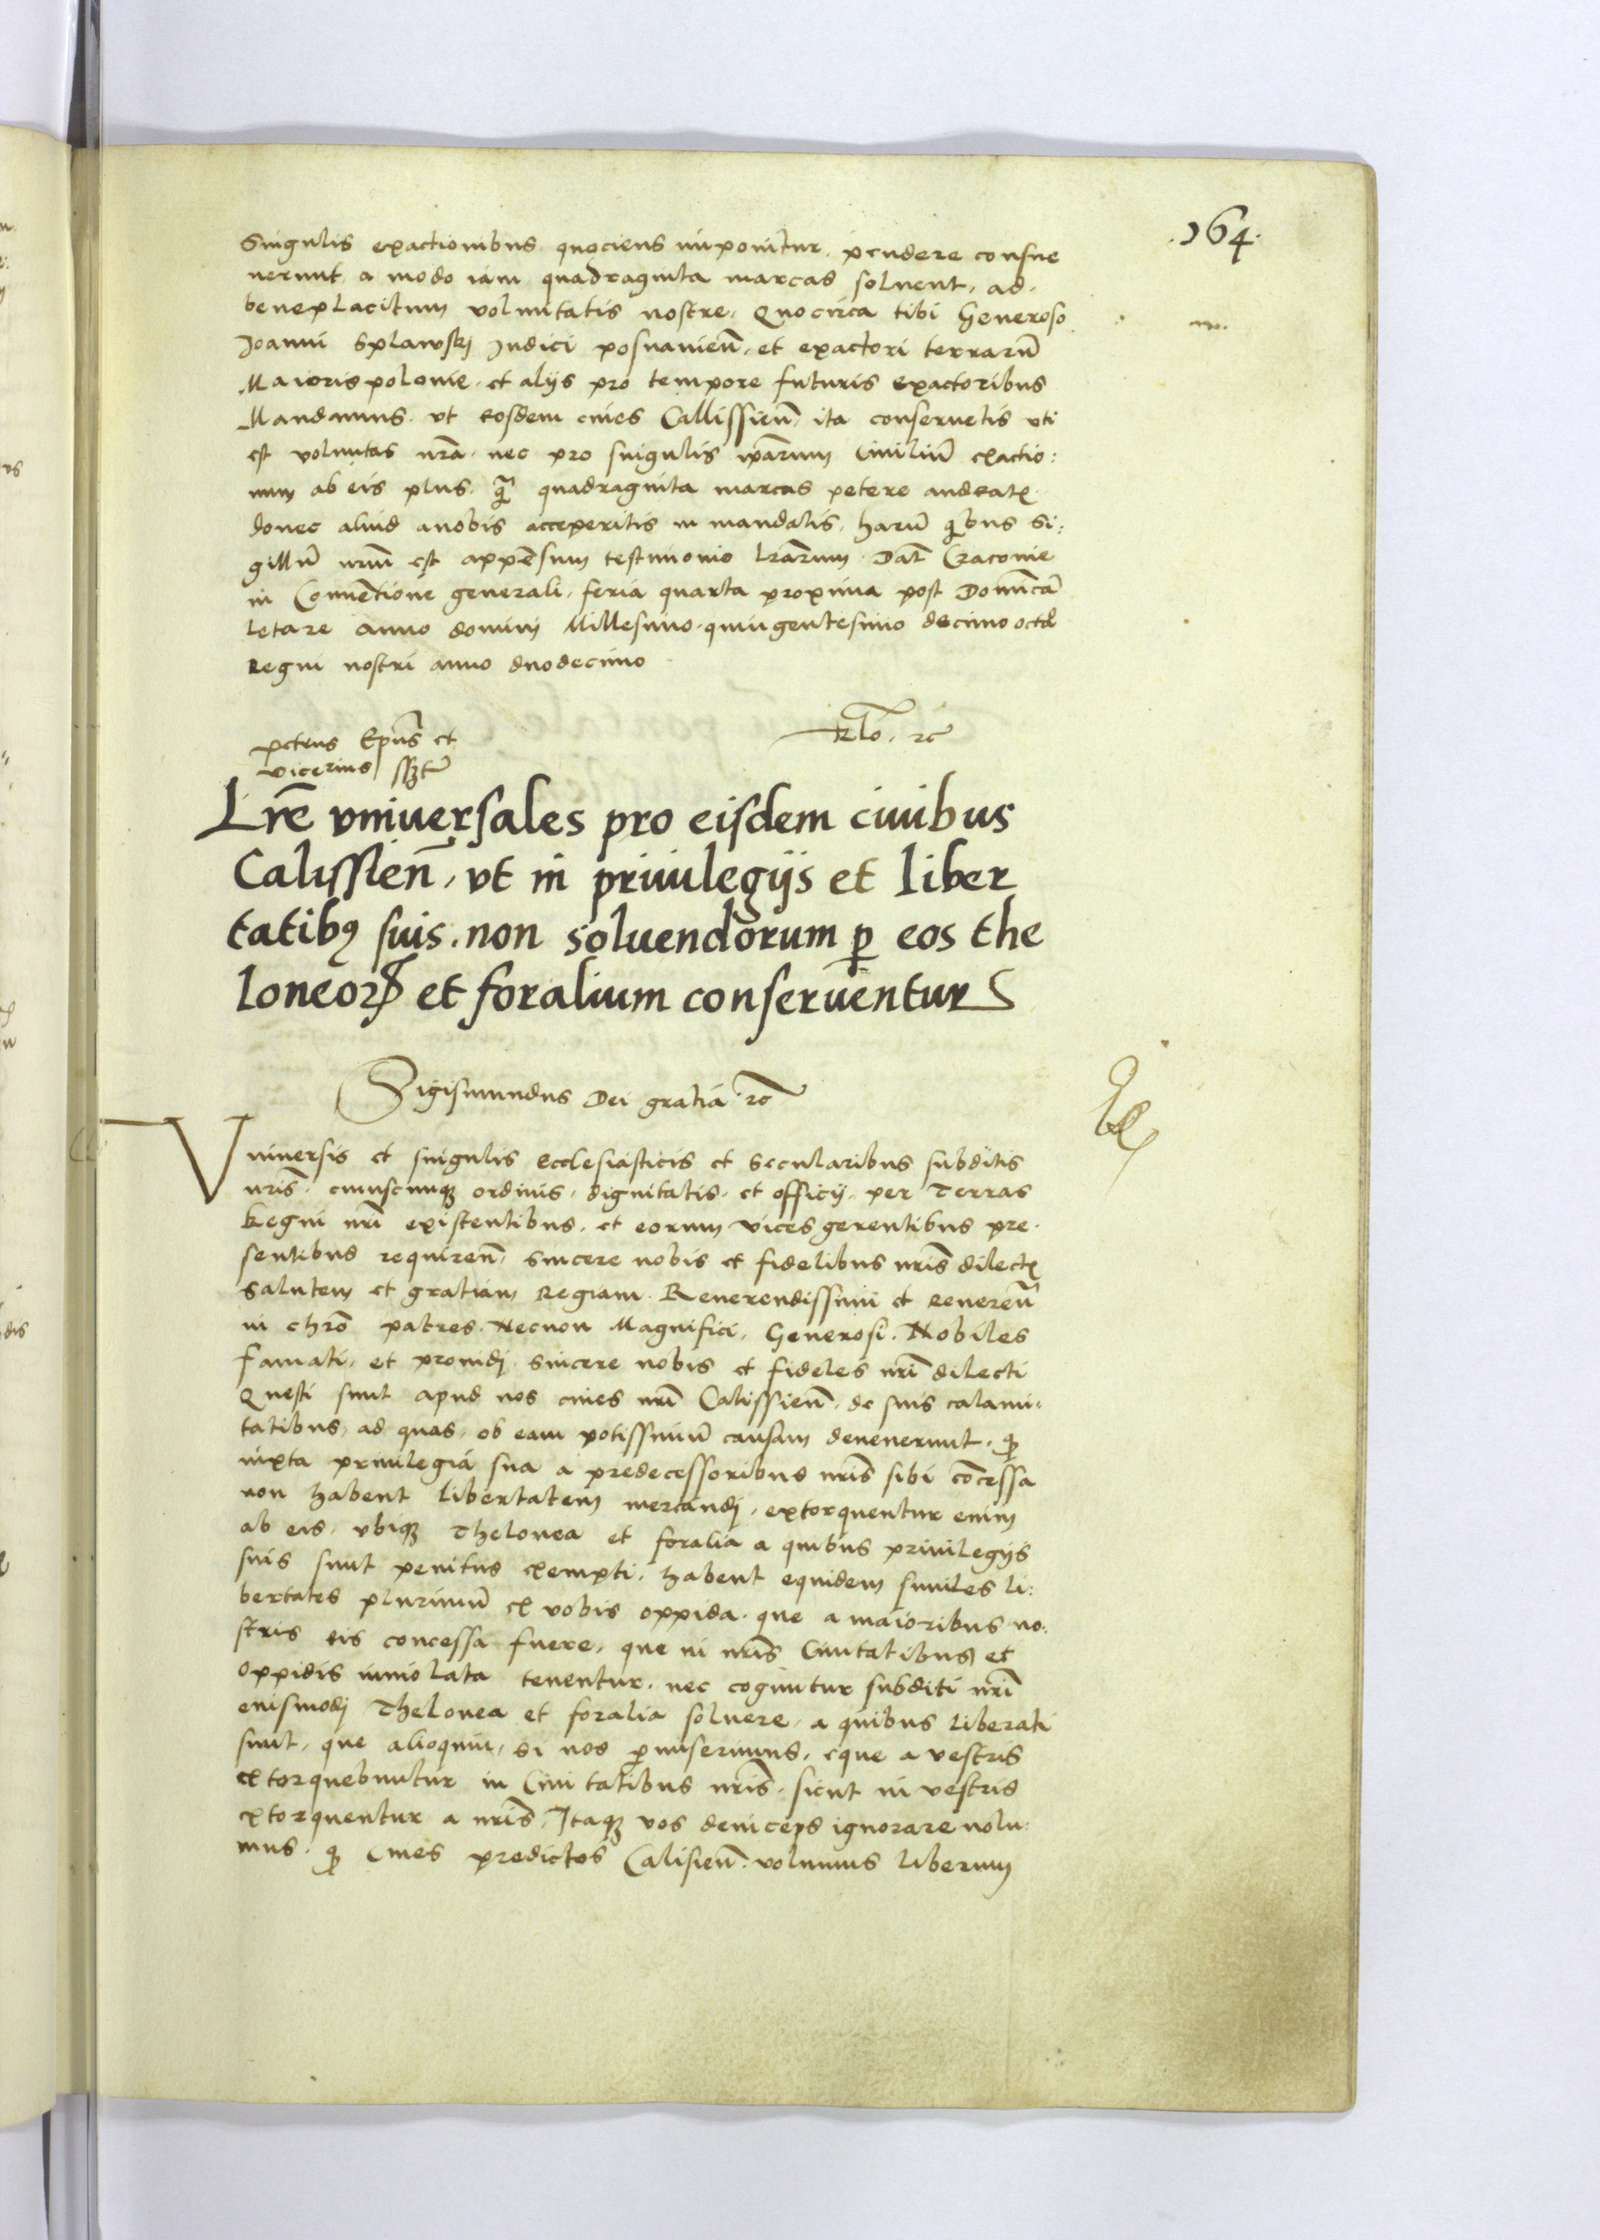 .164.
Singulis exactionibus quociens imponitur, pendere consue
uerunt, a modo iam quadraginta marcas soluent, ad
beneplacitum voluntatis nostre. Quocirca tibi Generoso
Joanni Splawskj Judici posnanieñ, et exactori terrarũ
Maiorispolonie, et alijs pro tempore futuris exactoribus
Mandamus, vt eosdem ciues Callissieñ, ita conseruetis vti
est voluntas nr̃a, nec pro singulis ip̃arum Ciuiliũ exactio:
num ab eis plus, q̃ quadraginta marcas petere audeatꝭ
donec aliud anobis acceperitis in mandatis, harũ quibus Si:
gillũ nrũm est appẽsum testimonio lr̃arum. Dat̃ Cracouie
in Conuẽtione generali, feria quarta proxima post Domicã
letare Anno domini Millesimo quingentesimo decimo octã
Regni nostri anno duodecimo
Petrus Ep̃us et
vicecrius sszt̃
Rl̃o. ꝛc̃
Lr̃e vniuersales pro eisdem ciuibus
Calissieñ, vt in priuilegijs et liber
tatibꝰ suis, non soluendorum ꝑ eos the
loneoꝝ et foralium conseruentur
Sigismundus Dei gratia ꝛc̃
Vniuersis et singulis Ecclesiasticis et Secularibus subditis
nr̃is, cuiuscunqꝫ ordinis, dignitatis, et officij, per Terras
Regni nr̃i existentibus, et eorum vices gerentibus pre
sentibus requireñ, sincere nobis et fidelibus nr̃is dilectꝭ
Salutem et gratiam Regiam. Reuerendissimi et Reuereñ
in chr̃o patres, Necnon Magnifici, Generosi, Nobiles
famati, et prouidj, sincere nobis et fideles nr̃i dilecti
Questi sunt apud nos ciues nr̃i Calissieñ, de suis calami=
tatibus, ad quas, ob eam potissimũ causam deuenerunt, qꝫ
iuxta priuilegia sua a predecessoribus nr̃is sibi cõcessa
non habent libertatem mercandj, extorquentur enim
ab eis, vbiqꝫ Thelonea et foralia a quibus priuilegijs
suis sunt penitus exempti, habent equidem similes li:
bertates plurimũ ex vobis oppida, que a maioribus no:
stris eis concessa fuere, que in nr̃is Ciuitatibus et
Oppidis inuiolata tenentur, nec coguntur subditi nr̃i
eiusmodj Thelonea et foralia soluere, a quibus liberati
sunt, que alioquin, si nos ꝑmiserimus, eque a vestris
extorquebuntur in Ciuitatibus nr̃is, sicut in vestris
extorquentur a nr̃is, Itaqꝫ vos deinceps ignorare nolu:
mus, qꝫ Ciues predictos Calisieñ, volumus liberum